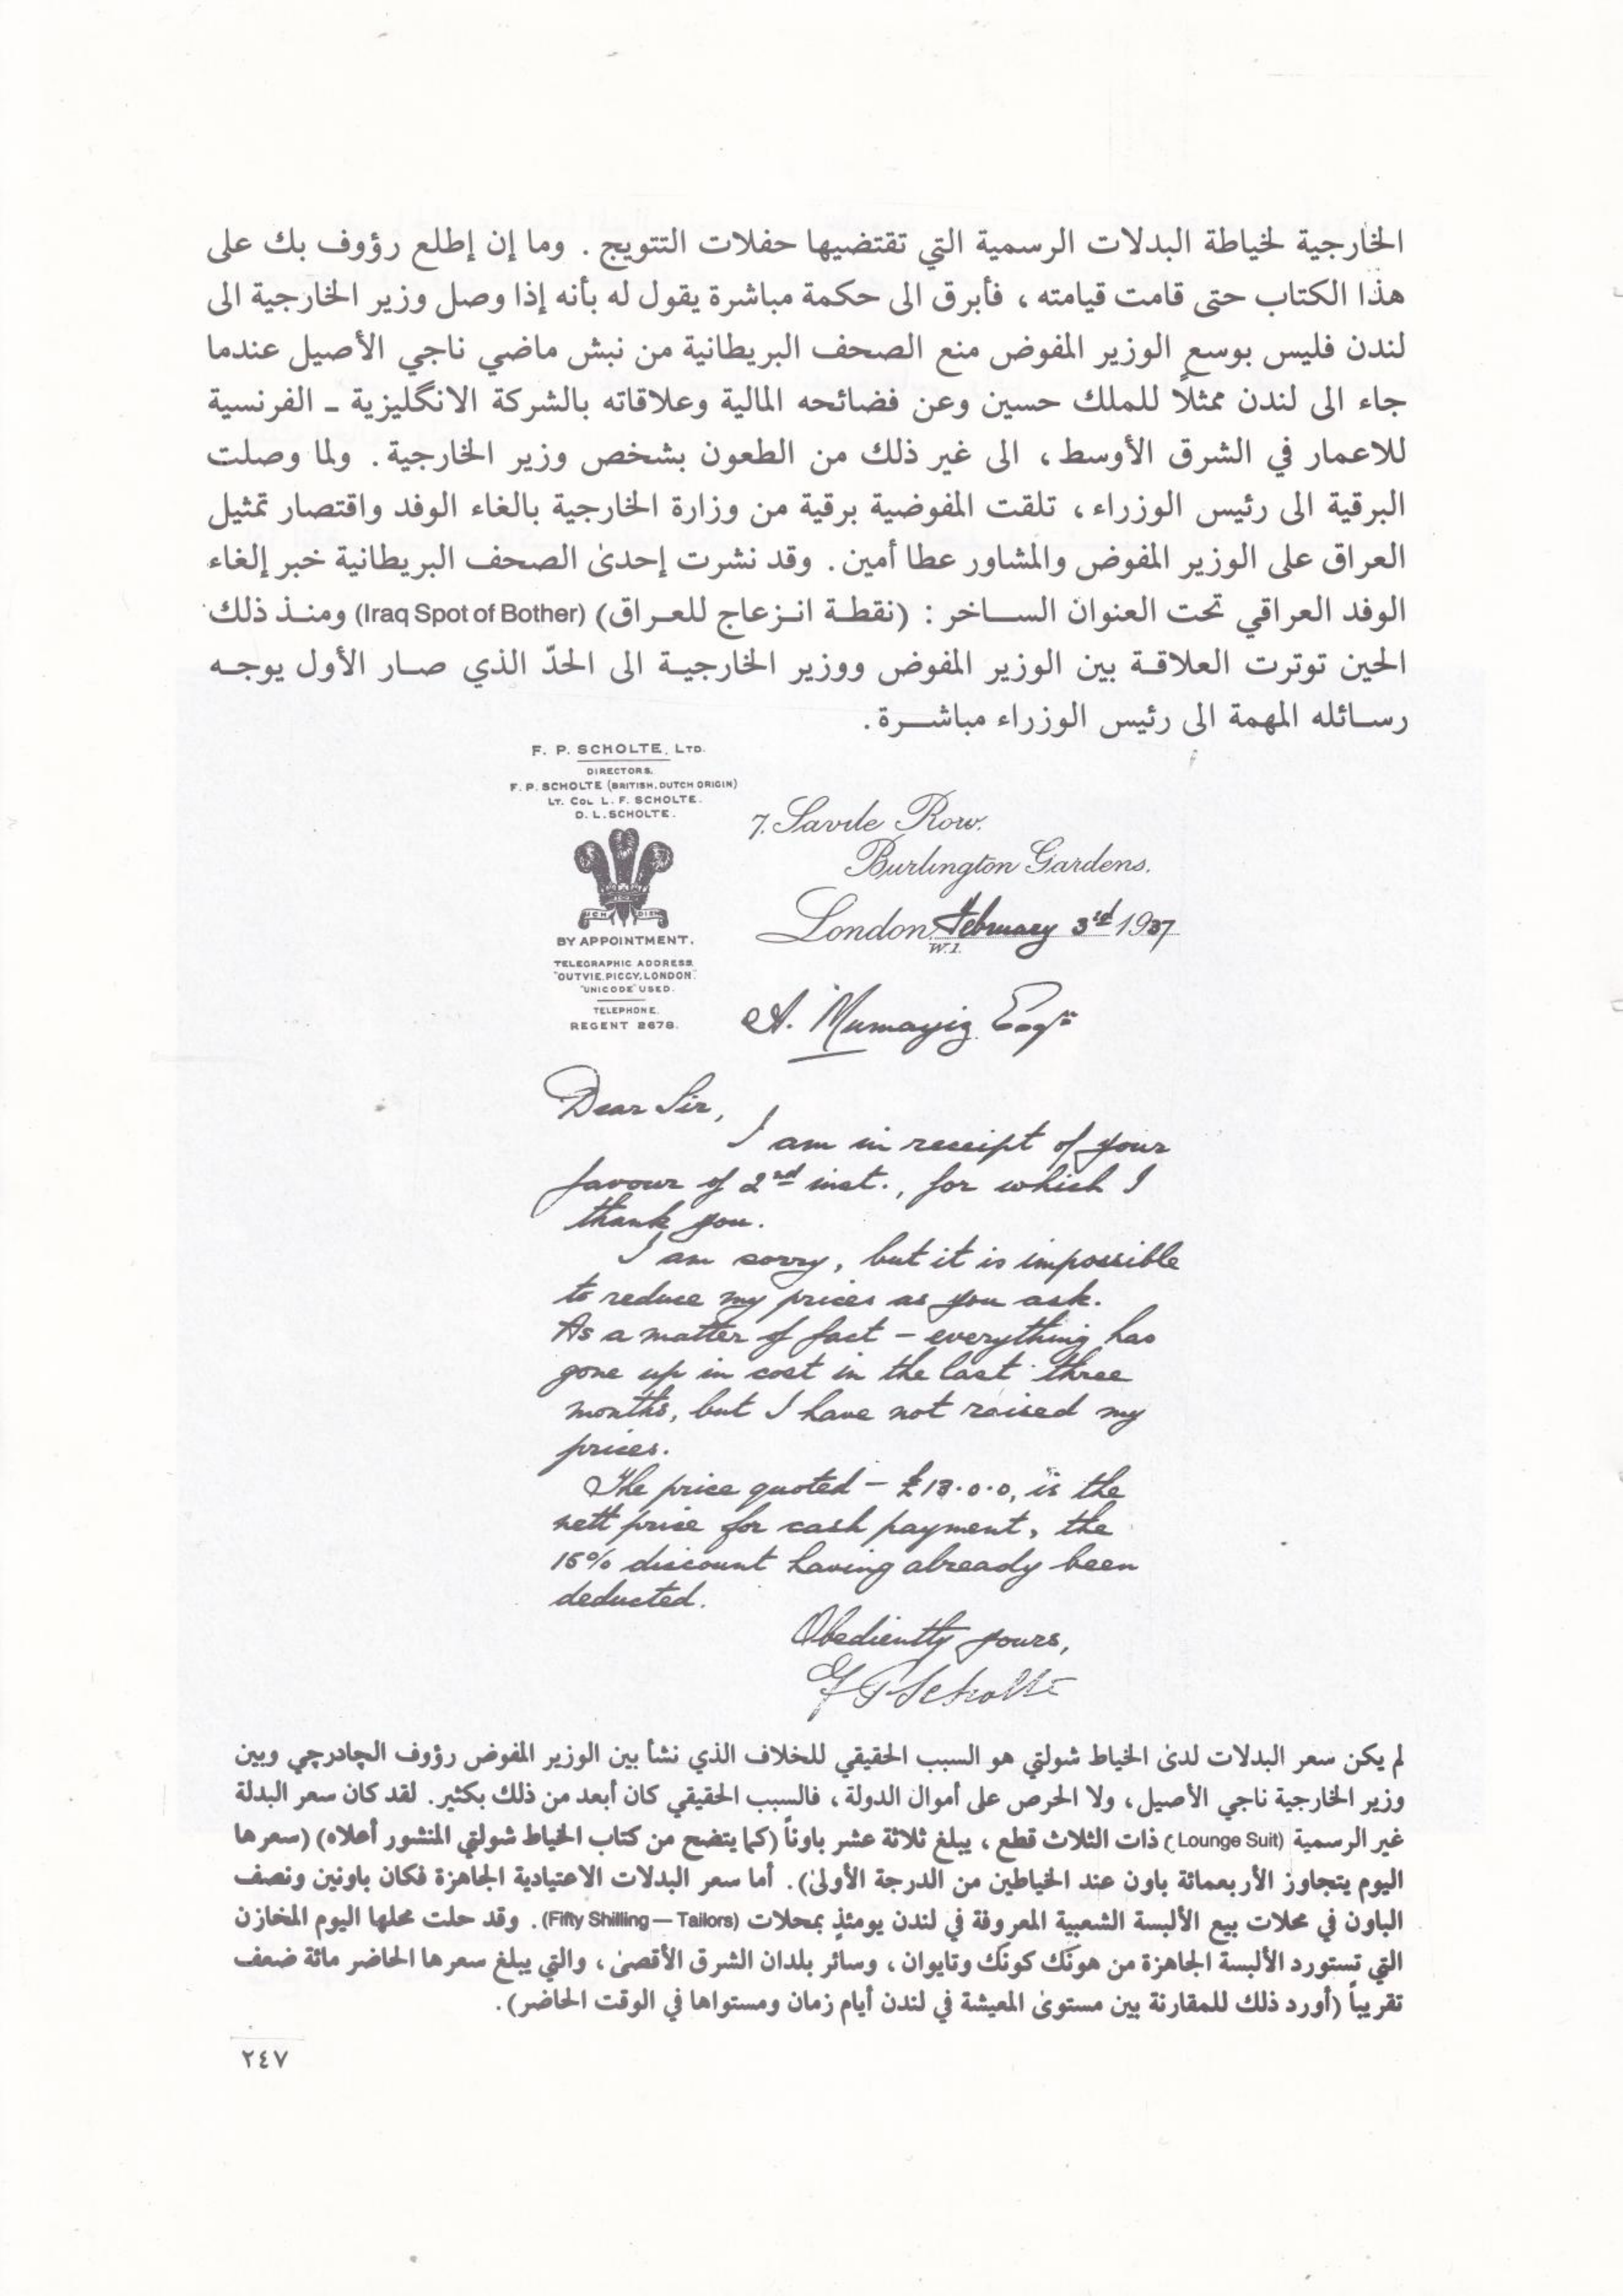 الخارجية لخياطة البدلات الرسمية التي تقتضيها حفلات التتويج . وما إن إطلع رؤوف بك على
هذا الكتاب حتى قامت قيامته ، فأبرق الى حكمة مباشرة يقول له بأنه إذا وصل وزير الخارجية الى
لندن فليس بوسع الوزير المفوض منع الصحف البريطانية من نبش ماضي ناجي الأصيل عندما
جاء الى لندن ممثلاً للملك حسين وعن فضائحه المالية وعلاقاته بالشركة الانگليزية ـ الفرنسية
للاعمار في الشرق الأوسط ، الى غير ذلك من الطعون بشخص وزير الخارجية . ولما وصلت
البرقية الى رئيس الوزراء ، تلقت المفوضية برقية من وزارة الخارجية بالغاء الوفد واقتصار تمثيل
العراق على الوزير المفوض والمشاور عطا أمين . وقد نشرت إحدىٰ الصحف البريطانية خبر إلغاء
الوفد العراقي تحت العنوان الساخر : (نقطة انزعاج للعراق) (Iraq Spot of Bother) ومنذ ذلك
الحين توترت العلاقة بين الوزير المفوض ووزير الخارجية الى الحدّ الذي صار الأول يوجه
رسائله المهمة الى رئيس الوزراء مباشرة .
F. P. SCHOLTE, LTD.
DIRECTORS.
F. P. SCHOLTE (BRITISH, DUTCH ORIGIN)
LT. COL L. F. SCHOLTE.
D. L. SCHOLTE.
ICH DIEN
BY APPOINTMENT.
TELEGRAPHIC ADDRESS.
"OUTVIE, PICCY, LONDON."
"UNICODE" USED.
TELEPHONE.
REGENT 2678.
7. Savile Row.
Burlington Gardens.
London, February 3rd 1937
W.1.
A. Mumayiz Esqre
Dear Sir,
I am in receipt of your
favour of 2nd inst., for which I
thank you.
I am sorry, but it is impossible
to reduce my prices as you ask.
As a matter of fact – everything has
gone up in cost in the last three
months, but I have not raised my
prices.
The price quoted – £13.0.0, is the
nett price for cash payment, the
15% discount having already been
deducted.
Obediently yours,
F P Scholte
لم يكن سعر البدلات لدىٰ الخياط شولتي هو السبب الحقيقي للخلاف الذي نشأ بين الوزير المفوض رؤوف الچادرچي وبين
وزير الخارجية ناجي الأصيل ، ولا الحرص على أموال الدولة ، فالسبب الحقيقي كان أبعد من ذلك بكثير . لقد كان سعر البدلة
غير الرسمية (Lounge Suit) ذات الثلاث قطع ، يبلغ ثلاثة عشر باوناً (كما يتضح من كتاب الخياط شولتي المنشور أعلاه) (سعرها
اليوم يتجاوز الأربعمائة باون عند الخياطين من الدرجة الأولىٰ) . أما سعر البدلات الاعتيادية الجاهزة فكان باونين ونصف
الباون في محلات بيع الألبسة الشعبية المعروفة في لندن يومئذٍ بمحلات (Fifty Shilling — Tailors) . وقد حلت محلها اليوم المخازن
التي تستورد الألبسة الجاهزة من هونگ كونگ وتايوان ، وسائر بلدان الشرق الأقصىٰ ، والتي يبلغ سعرها الحاضر مائة ضعف
تقريباً (أورد ذلك للمقارنة بين مستوىٰ المعيشة في لندن أيام زمان ومستواها في الوقت الحاضر) .
٢٤٧